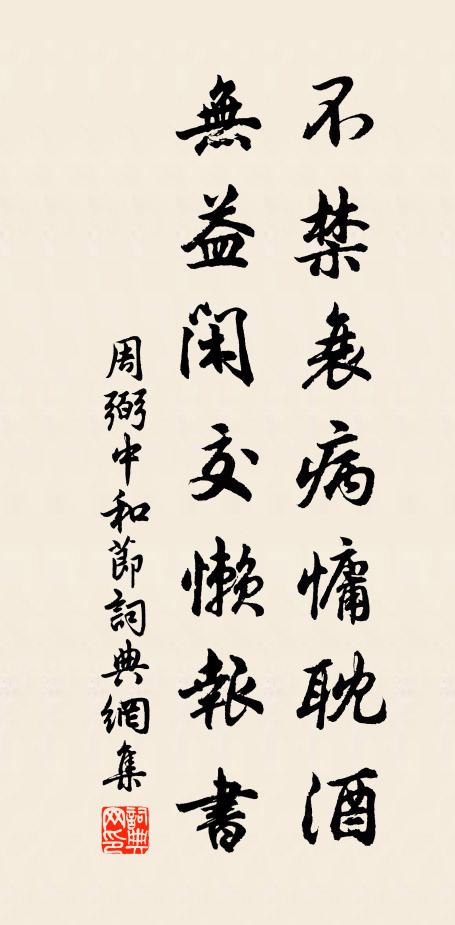 不禁衰病慵耽酒
無益閑交懶報書
周弼中和節詞典網集
詞典網印